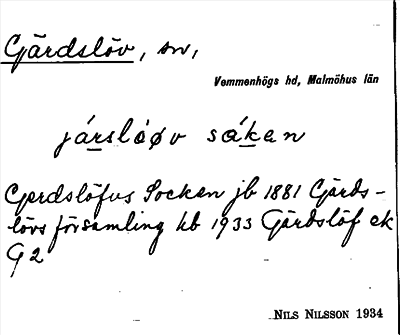 Gärdslöv, sn,
Vemmenhögs hd, Malmöhus län
járslöøv sóken
Gerdslöfvs Socken jb 1881 Gärds-
lövs församling kb 1933 Gärdslöf ek
G2
NILS NILSSON 1934